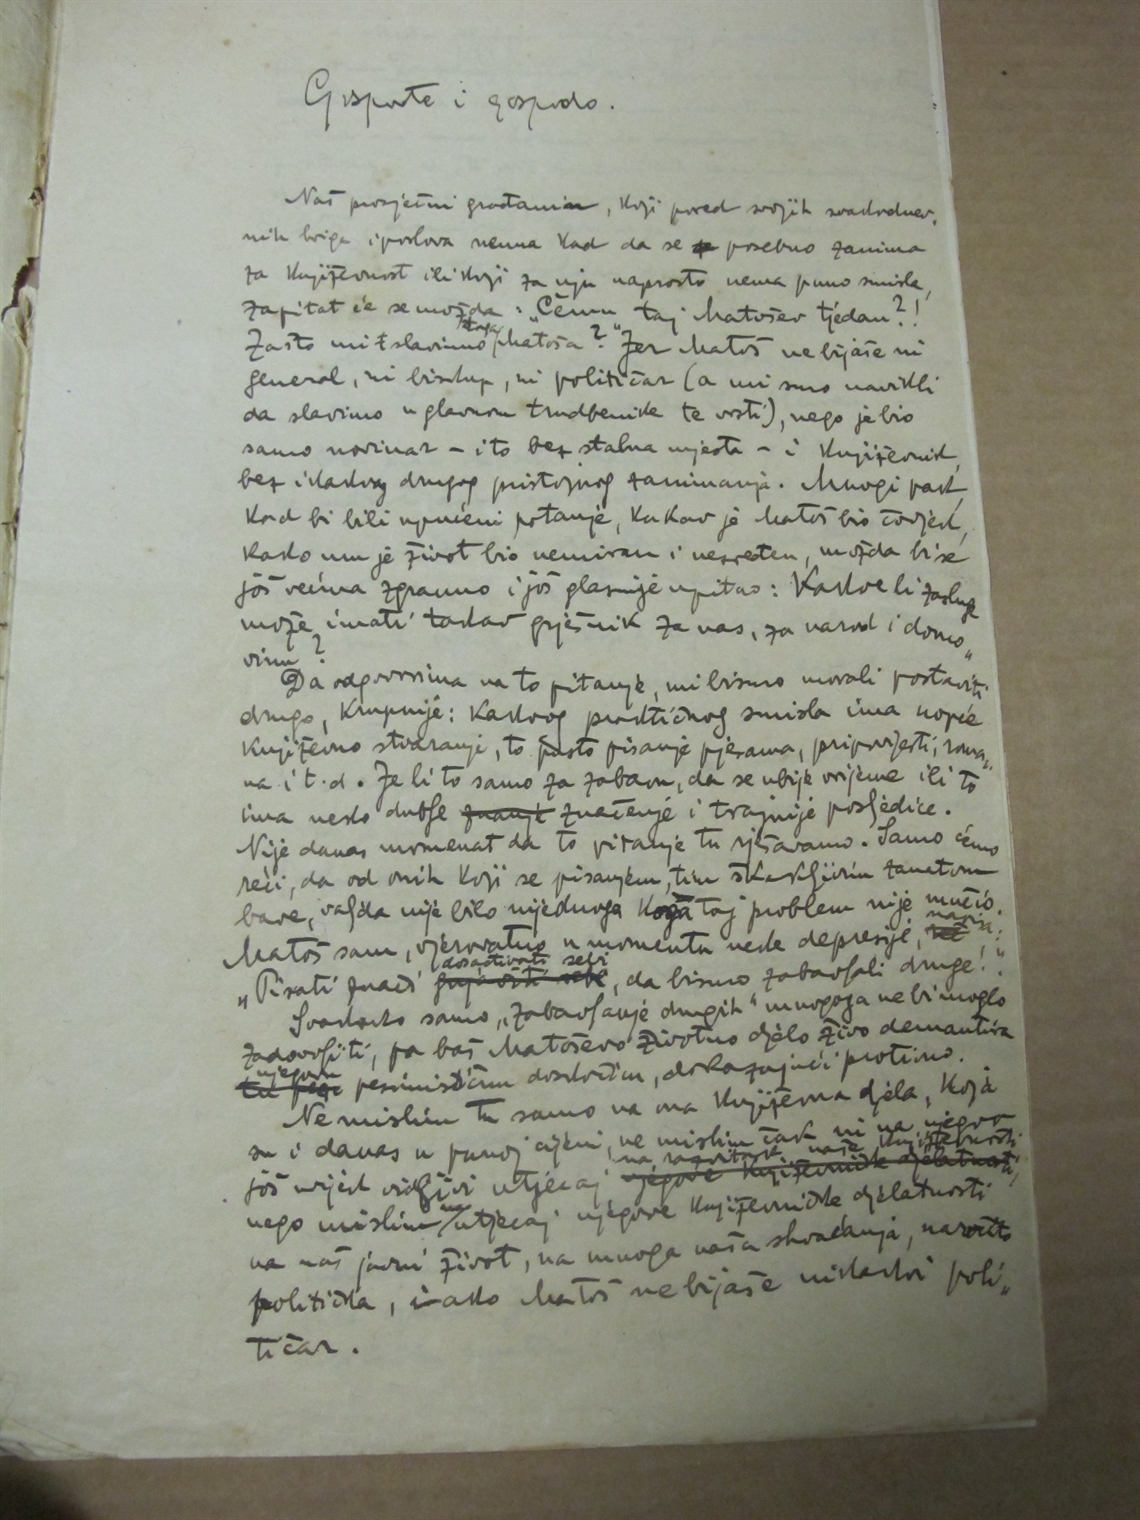 Gospođe i gospodo.
Naš prosječni građanin, koji pored svojih svakodnev-
nih briga i poslova nema kad da se posebno zanima
za književnost ili koji za nju naprosto nema puno smisla,
zapitat će se možda: „Čemu taj Matošev tjedan?!
Zašto mi slavimo toga Matoša?“ Jer Matoš ne bijaše ni
general, ni biskup, ni političar (a mi smo navikli
da slavimo uglavnom trudbenike te vrsti), nego je bio
samo novinar – i to bez stalna mjesta – i književnik,
bez ikakvog drugog pristojnog zanimanja. Mnogi pak,
kad bi bili upućeni pitanje, kakav je Matoš bio čovjek,
kako mu je život bio nemiran i nesređen, možda bi se
još većma zgranuo i još glasnije upitao: Kakve li zasluge
može imati takav grješnik za nas, za narod i domo„
vinu?
Da odgovorima na to pitanje, mi bismo morali postaviti
drugo, krupnije: Kakvog praktičnog smisla ima uopće
književno stvaranje, to pusto pisanje pjesama, pripovijesti, roma„
na i t.d. Je li to samo za zabavu, da se ubije vrijeme ili to
ima neko dublje značenje i trajnije posljedice.
Nije danas momenat da to pitanje tu rješavamo. Samo ćemo
reći, da od onih koji se pisanjem, tim škakljivim zanatom
bave, valjda nije bilo nijednoga koga taj problem nije mučio.
Matoš sam, vjerovatno u momentu neke depresije, napisa:
„Pisati znači dosađivati sebi, da bismo zabavljali druge!“
Svakako samo „zabavljanje drugih“ mnogoga ne bi moglo
zadovoljiti, pa baš Matoševo životno djelo živo demantira
njegovu pesimističnu doskočicu, dokazujući protivno.
Ne mislim tu samo na ona književna djela, koja
su i danas u punoj cijeni, ne mislim čak ni na njegov
još uvijek vidljivi utjecaj na razvitak naše književnosti,
nego mislim na utjecaj njegove književničke djelatnosti
na naš javni život, na mnoga naša shvaćanja, naročito
politička, iako Matoš ne bijaše nikakvi poli„
tičar.